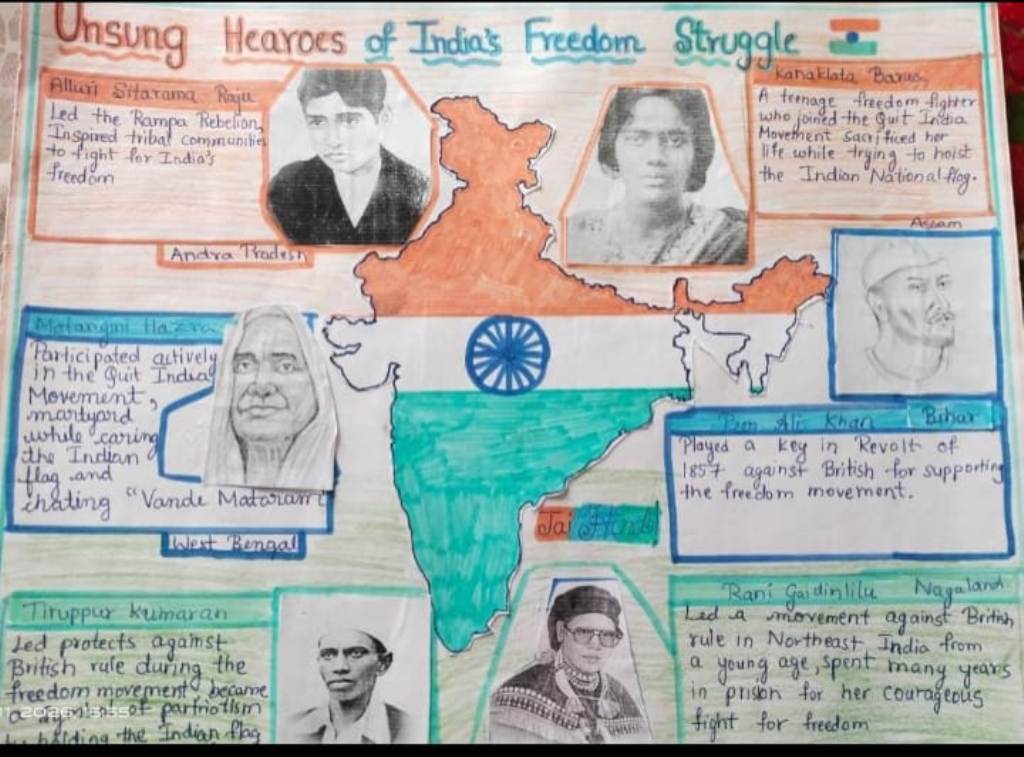 Unsung Hearoes of India's Freedom Struggle
Alluri Sitarama Raju
Led the Rampa Rebelion,
Inspired tribal communities
to fight for India's
freedom
Andra Pradesh
Kanaklata Barua,
A teenage freedom fighter
who joined the Quit India
Movement sacrificed her
life while trying to hoist
the Indian National flag.
Assam
Matangini Hazra
Participated actively
in the Quit India
Movement,
martyard
while caring
the Indian
flag and
chating "Vande Mataram"
West Bengal
Peer Ali Khan Bihar
Played a key in Revolt of
1857 against British for supporting
the freedom movement.
Jai Hind
Tiruppur Kumaran
Led protects against
British rule during the
freedom movement became
of partriotism
holding the Indian flag
Rani Gaidinlilu Nagaland
Led a movement against British
rule in Northeast India from
a young age, spent many years
in prison for her courageous
fight for freedom
2026 13:55